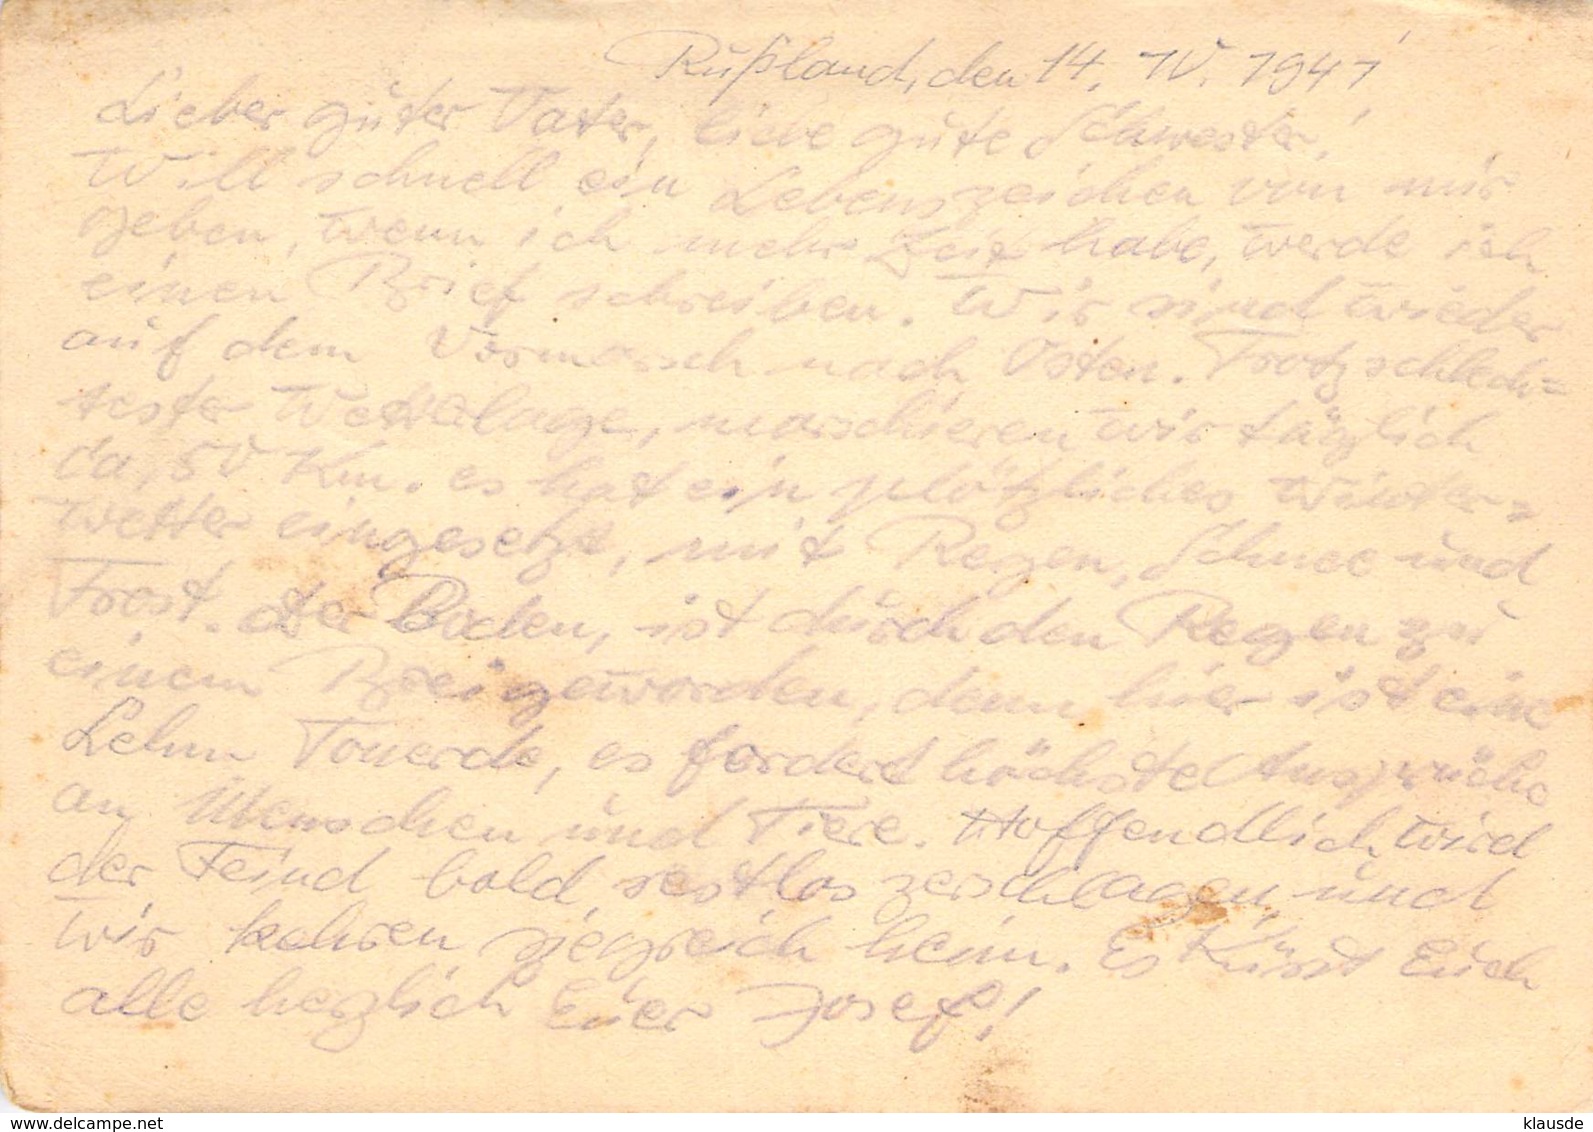 Rußland, den 14. IV. 1941
Lieber guter Vater, liebe gute Schwester!
Will schnell ein Lebenszeichen von mir
geben, wenn ich mehr Zeit habe, werde ich
einen Brief schreiben. Wir sind wieder
auf dem Vormarsch nach Osten. Trotz schlech=
tester Wetterlage, marschieren wir täglich
ca, 50 Km. es hat ein plötzliches Winter=
wetter eingesetzt, mit Regen, Schnee und
Frost. der Boden, ist durch den Regen zu
einem Brei geworden, denn hier ist eine
Lehm Tonerde, es fordert höchste Ansprüche
an Menschen und Tiere. Hoffendlich wird
der Feind bald restlos zerschlagen, und
wir kehren siegreich heim. Es Küsst Euch
alle herzlich Euer Josef!
delcampe.net
klausde